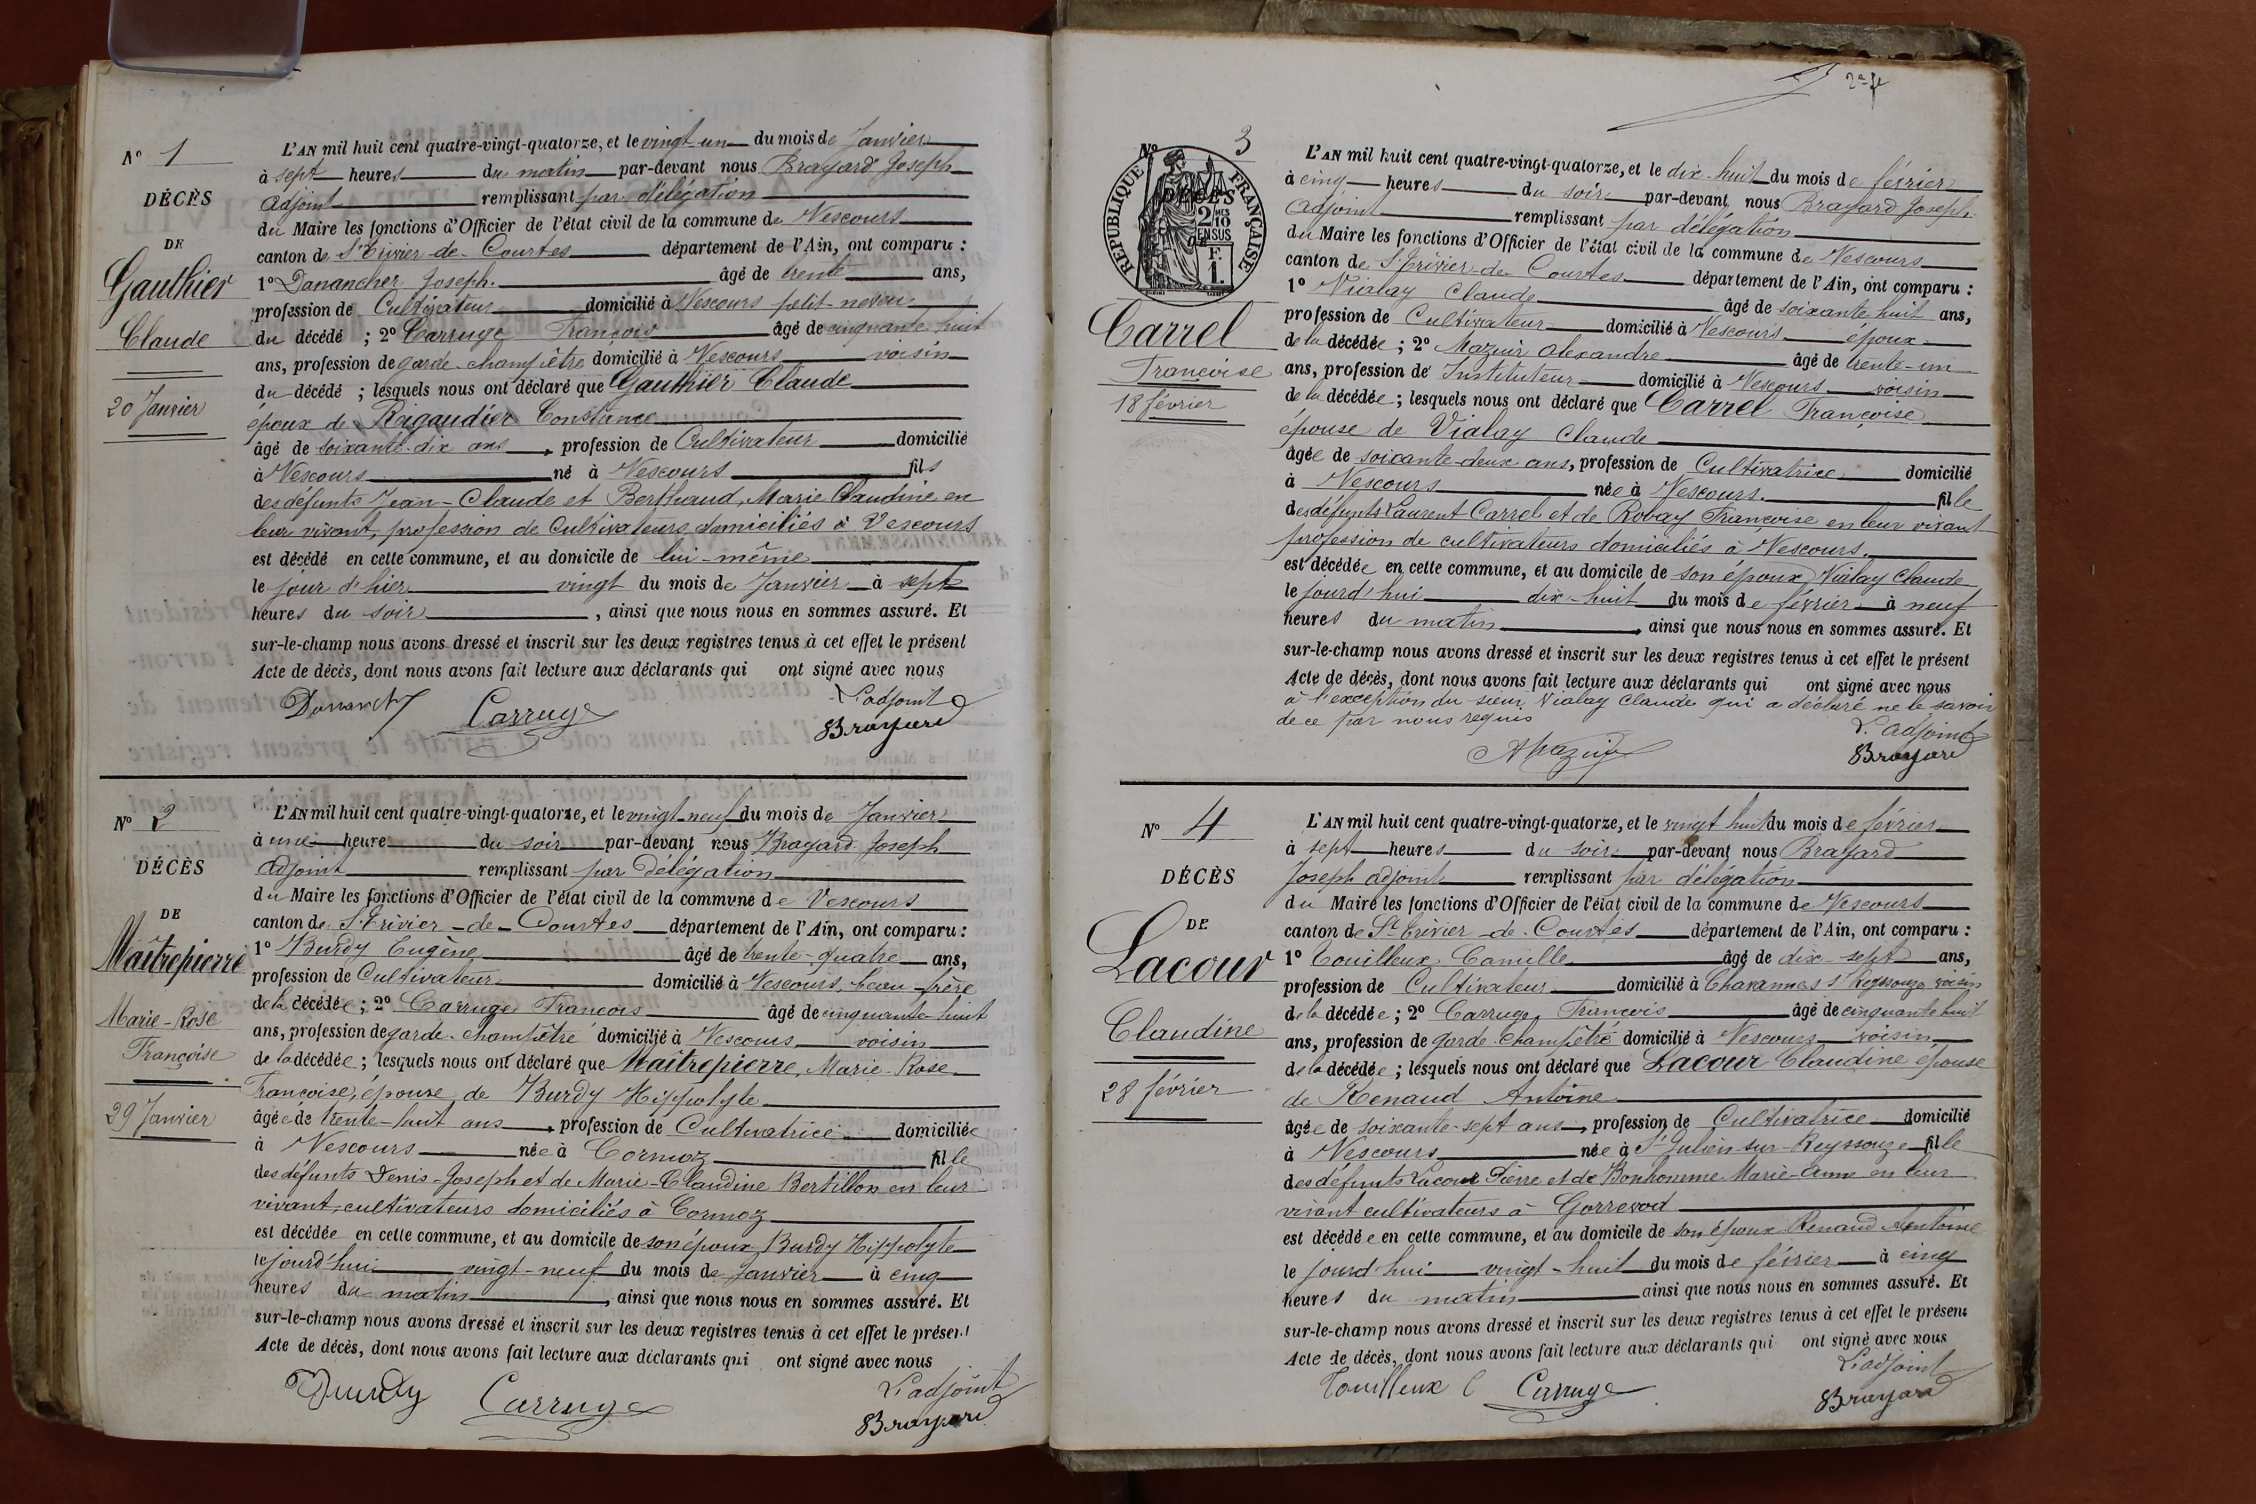 N° 1
DÉCÈS
DE
Gauthier
Claude
20 Janvier
L'AN mil huit cent quatre-vingt-quatorze, et le vingt-un du mois de Janvier
à sept heures du matin par-devant nous Brayard Joseph
adjoint remplissant par délégation
du Maire les fonctions d'Officier de l'état civil de la commune de Vescours
canton de St Trivier-de-Courtes département de l'Ain, ont comparu :
1° Danancher Joseph. âgé de trente ans,
profession de Cultivateur domicilié à Vescours petit-neveu
du décédé ; 2° Carruge François âgé de cinquante huit
ans, profession de garde-champêtre domicilié à Vescours voisin
du décédé ; lesquels nous ont déclaré que Gauthier Claude
époux de Rigaudier Constance
âgé de soixante-dix ans, profession de Cultivateur domicilié
à Vescours né à Vescours fils
des défunts Jean-Claude et Berthaud, Marie Claudine en
leur vivant, profession de Cultivateurs domiciliés à Vescours
est décédé en cette commune, et au domicile de lui-même
le jour d'hier vingt du mois de Janvier à sept
heures du soir, ainsi que nous nous en sommes assuré. Et
sur-le-champ nous avons dressé et inscrit sur les deux registres tenus à cet effet le présent
Acte de décès, dont nous avons fait lecture aux déclarants qui ont signé avec nous
Carruge
L'adjoint
Brayard
N° 2
DÉCÈS
DE
Maîtrepierre
Marie-Rose
Françoise
29 Janvier
L'AN mil huit cent quatre-vingt-quatorze, et le vingt-neuf du mois de Janvier
à une heure du soir par-devant nous Brayard Joseph
adjoint remplissant par délégation
du Maire les fonctions d'Officier de l'état civil de la commune de Vescours
canton de St Trivier-de-Courtes département de l'Ain, ont comparu :
1° Burdy Eugène âgé de trente-quatre ans,
profession de Cultivateur domicilié à Vescours, beau-frère
de la décédée ; 2° Carruge François âgé de cinquante-huit
ans, profession de garde-champêtre domicilié à Vescours voisin
de la décédée ; lesquels nous ont déclaré que Maîtrepierre, Marie-Rose
Françoise, épouse de Burdy Hippolyte
âgée de trente-huit ans, profession de Cultivatrice domiciliée
à Vescours née à Cormoz fille
des défunts Denis-Joseph et de Marie-Claudine Bertillon en leur
vivant, cultivateurs domiciliés à Cormoz
est décédée en cette commune, et au domicile de son époux Burdy Hippolyte
le jourd'hui vingt-neuf du mois de Janvier à cinq
heures du matin, ainsi que nous nous en sommes assuré. Et
sur-le-champ nous avons dressé et inscrit sur les deux registres tenus à cet effet le présent
Acte de décès, dont nous avons fait lecture aux déclarants qui ont signé avec nous
Burdy Carruge
L'adjoint
Brayard
N° 3
RÉPUBLIQUE FRANÇAISE
DÉCÈS
2/10 MES
EN SUS
F. 1.
Carrel
Françoise
18 février
L'AN mil huit cent quatre-vingt-quatorze, et le dix-huit du mois de février
à cinq heures du soir par-devant nous Brayard Joseph
adjoint remplissant par délégation
du Maire les fonctions d'Officier de l'état civil de la commune de Vescours
canton de St Trivier-de Courtes département de l'Ain, ont comparu :
1° Vialay Claude âgé de soixante huit ans,
profession de Cultivateur domicilié à Vescours époux
de la décédée ; 2° Mazuir Alexandre âgé de trente-un
ans, profession de Instituteur domicilié à Vescours voisin
de la décédée ; lesquels nous ont déclaré que Carrel Françoise
épouse de Vialay Claude
âgée de soixante-deux ans, profession de Cultivatrice domicilié
à Vescours née à Vescours. fille
des défunts Laurent Carrel et de Robay Françoise en leur vivant
profession de cultivateurs domiciliés à Vescours.
est décédée en cette commune, et au domicile de son époux Vialay Claude
le jourd'hui dix-huit du mois de février à neuf
heures du matin, ainsi que nous nous en sommes assuré. Et
sur-le-champ nous avons dressé et inscrit sur les deux registres tenus à cet effet le présent
Acte de décès, dont nous avons fait lecture aux déclarants qui ont signé avec nous
à l'exception du sieur Vialay Claude qui a déclaré ne le savoir
de ce par nous requis
L'adjoint
A Mazuir
Brayard
N° 4
DÉCÈS
DE
Lacour
Claudine
28 février
L'AN mil huit cent quatre-vingt-quatorze, et le vingt huit du mois de février
à sept heures du soir par-devant nous Brayard
Joseph adjoint remplissant par délégation
du Maire les fonctions d'Officier de l'état civil de la commune de Vescours
canton de St Trivier-de-Courtes département de l'Ain, ont comparu :
1° Touilleux Camille âgé de dix-sept ans,
profession de Cultivateur domicilié à Chavannes s/ Reyssouze voisin
de la décédée ; 2° Carruge François âgé de cinquante huit
ans, profession de garde-champêtre domicilié à Vescours voisin
de la décédée ; lesquels nous ont déclaré que Lacour Claudine épouse
de Renaud Antoine
âgée de soixante-sept ans, profession de Cultivatrice domicilié
à Vescours née à St Julien-sur-Reyssouze fille
des défunts Lacour Pierre et de Bonhomme Marie-Anne en leur
vivant cultivateurs à Gorrevod
est décédée en cette commune, et au domicile de son époux Renaud Antoine
le jourd'hui vingt-huit du mois de février à cinq
heures du matin ainsi que nous nous en sommes assuré. Et
sur-le-champ nous avons dressé et inscrit sur les deux registres tenus à cet effet le présent
Acte de décès, dont nous avons fait lecture aux déclarants qui ont signé avec nous
L'adjoint
Touilleux C Carruge
Brayard